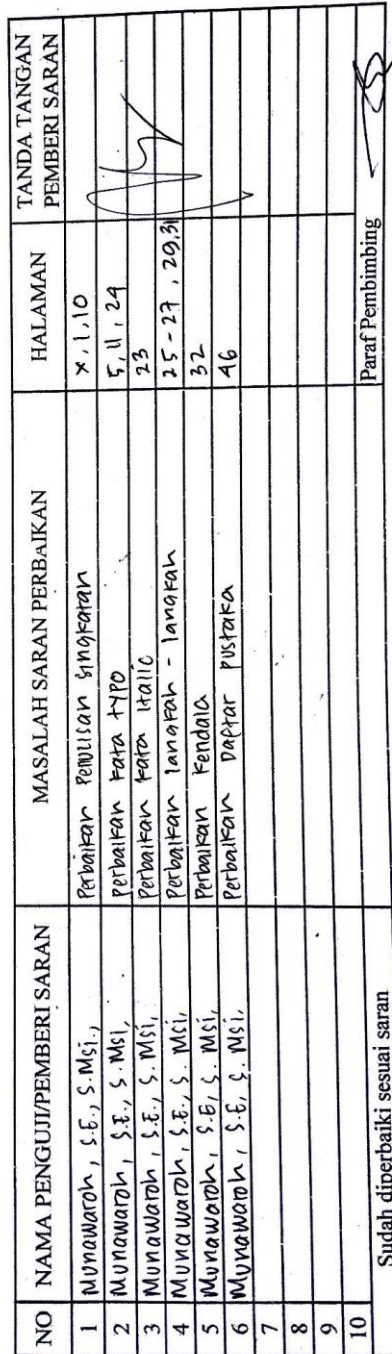 NO NAMA PENGUJI/PEMBERI SARAN MASALAH SARAN PERBAIKAN HALAMAN TANDA TANGAN PEMBERI SARAN
1 Munawaroh, S.E., S.Msi., Perbaikan Penulisan singkatan x, 1, 10
2 Munawaroh, S.E., S.Msi, Perbaikan kata typo 5, 11, 24
3 Munawaroh, S.E., S.Msi, Perbaikan kata italic 23
4 Munawaroh, S.E., S.Msi, Perbaikan langkah - langkah 25-27, 29,31
5 Munawaroh, S.E, S.Msi, Perbaikan kendala 32
6 Munawaroh, S.E, S.Msi, Perbaikan Daftar pustaka 46
7
8
9
10
Sudah diperbaiki sesuai saran Paraf Pembimbing